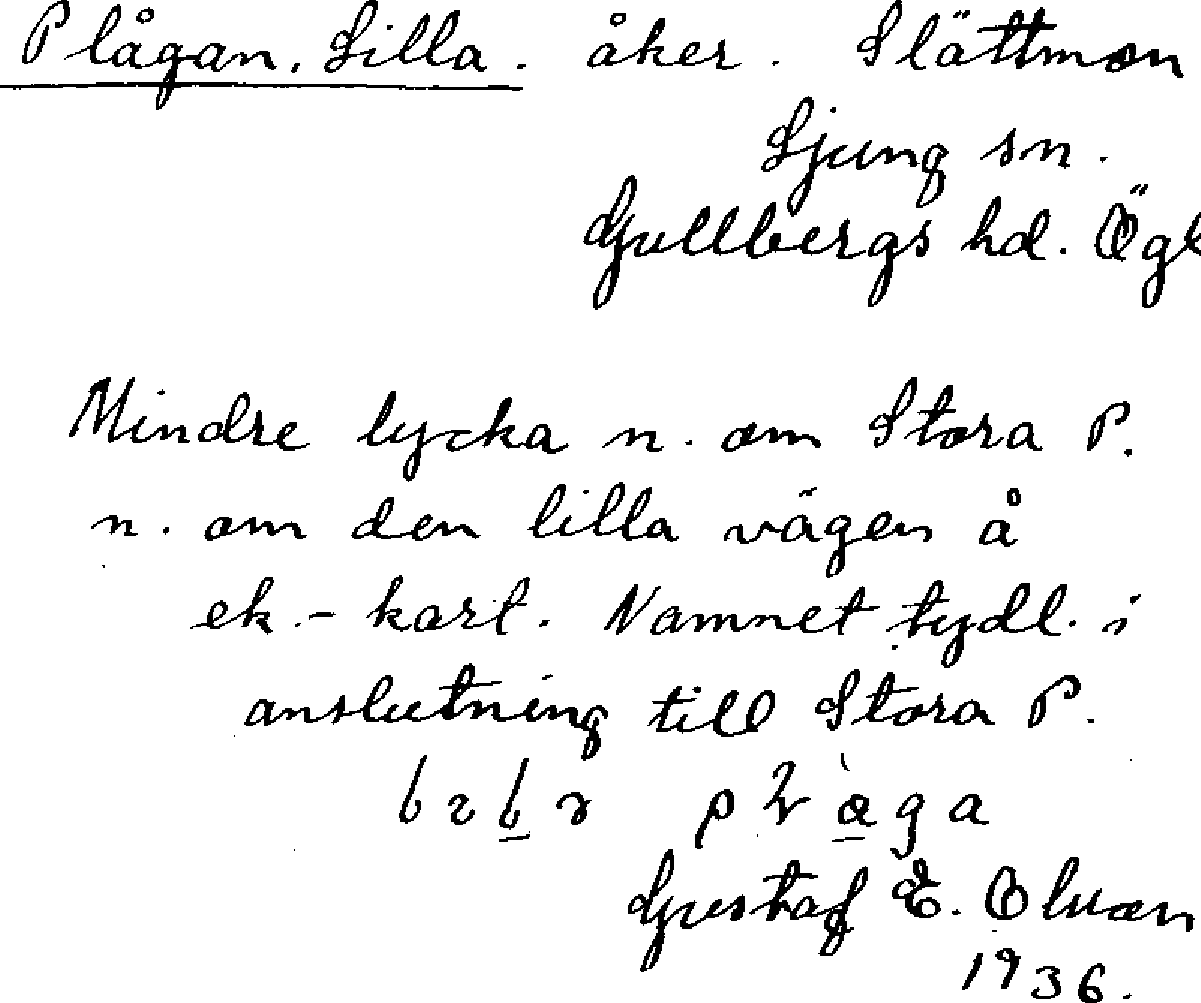 Plågan, Lilla. åker. Slättmon
Ljung sn.
Gullbergs hd. Ögl
Mindre lycka n. om Stora P.
n. om den lilla vägen å
ek.-kart. Namnet tydl. i
anslutning till Stora P.
Gustaf E.
1936.